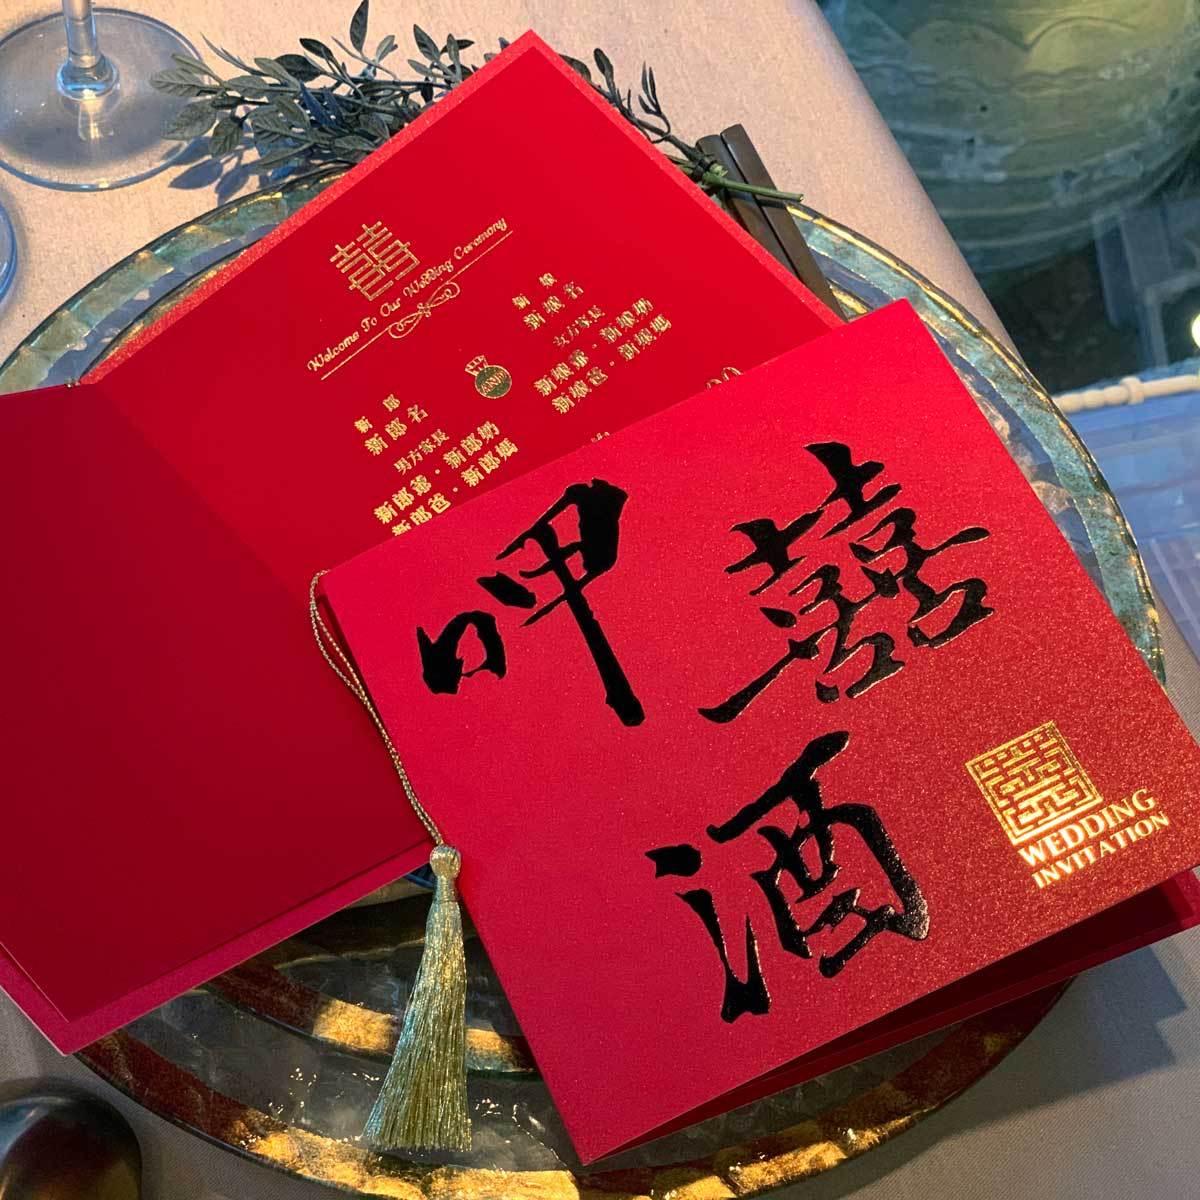 囍
Welcome To Our Wedding Ceremony
新郎
新郎名
男方家長
新郎爺·新郎奶
新郎爸·新郎媽
AND
新娘
新娘名
女方家長
新娘爺·新娘奶
新娘爸·新娘媽
呷囍
酒
囍
WEDDING
INVITATION